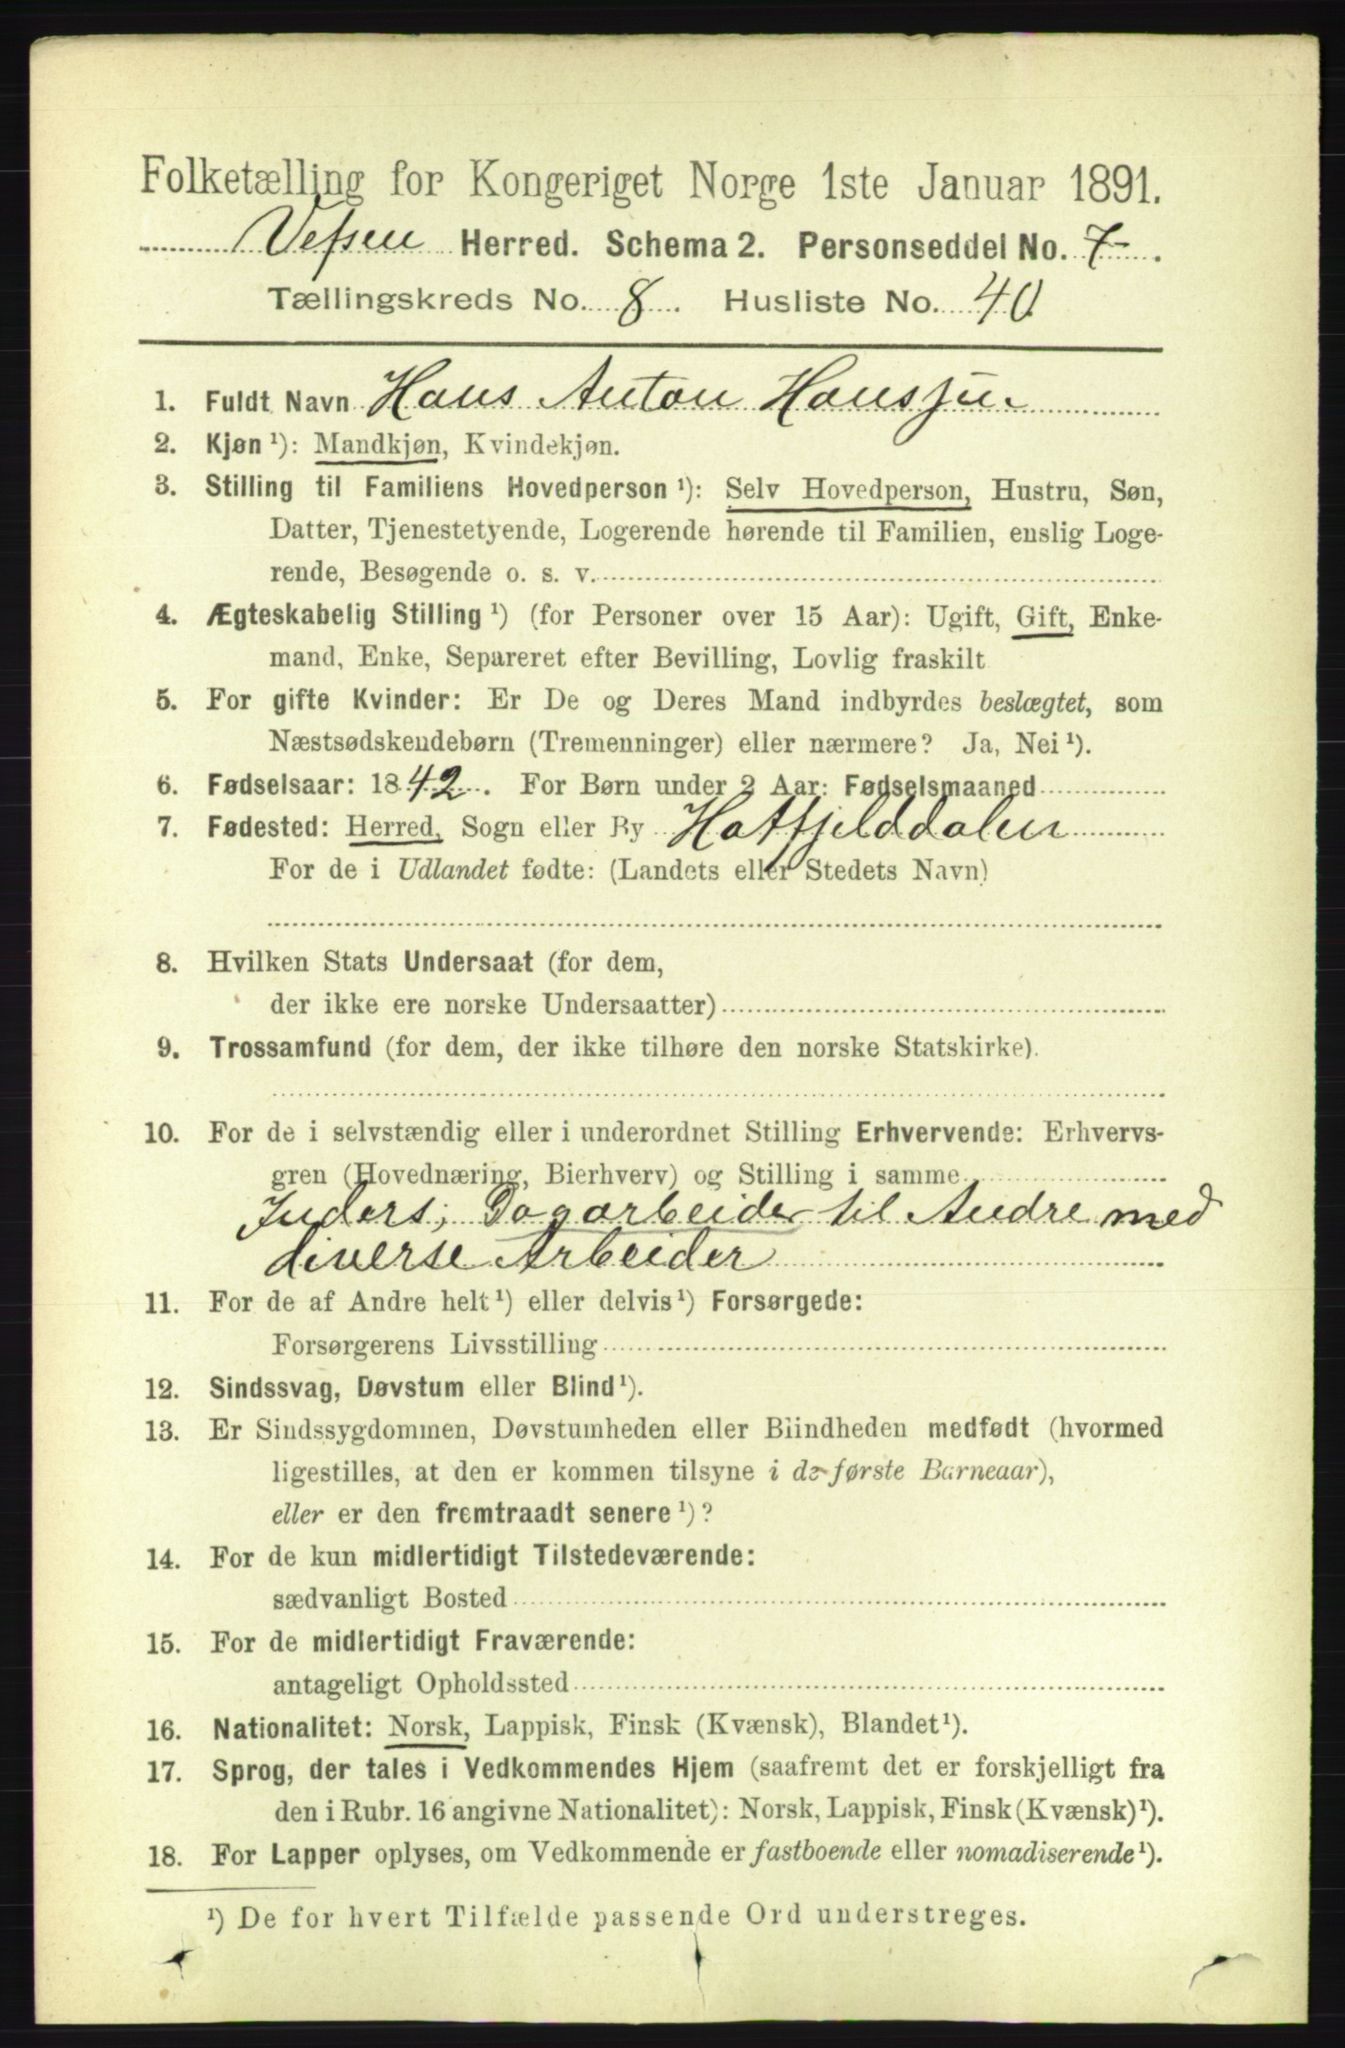 Folketælling for Kongeriget Norge 1ste Januar 1891.
Vefsen Herred. Schema 2. Personseddel No. 7.
Tællingskreds No. 8. Husliste No. 40
1. Fuldt Navn Hans Anton Hans
2. Kjøn ¹): Mandkjøn, Kvindekjøn.
3. Stilling til Familiens Hovedperson ¹): Selv Hovedperson, Hustru, Søn,
Datter, Tjenestetyende, Logerende hørende til Familien, enslig Loge-
rende, Besøgende o. s. v.
4. Ægteskabelig Stilling ¹) (for Personer over 15 Aar): Ugift, Gift, Enke-
mand, Enke, Separeret efter Bevilling, Lovlig fraskilt
5. For gifte Kvinder: Er De og Deres Mand indbyrdes beslægtet, som
Næstsødskendebørn (Tremenninger) eller nærmere? Ja, Nei ¹).
6. Fødselsaar: 1842. For Børn under 2 Aar: Fødselsmaaned
7. Fødested: Herred, Sogn eller By Hatfjelddalen
For de i Udlandet fødte: (Landets eller Stedets Navn)
8. Hvilken Stats Undersaat (for dem,
der ikke ere norske Undersaatter)
9. Trossamfund (for dem, der ikke tilhøre den norske Statskirke).
10. For de i selvstændig eller i underordnet Stilling Erhvervende: Erhvervs-
gren (Hovednæring, Bierhverv) og Stilling i samme
Inders, Dagarbeider til Andre med
diverse Arbeider
11. For de af Andre helt ¹) eller delvis ¹) Forsørgede:
Forsørgerens Livsstilling
12. Sindssvag, Døvstum eller Blind ¹).
13. Er Sindssygdommen, Døvstumheden eller Blindheden medfødt (hvormed
ligestilles, at den er kommen tilsyne i de første Barneaar),
eller er den fremtraadt senere ¹)?
14. For de kun midlertidigt Tilstedeværende:
sædvanligt Bosted
15. For de midlertidigt Fraværende:
antageligt Opholdssted
16. Nationalitet: Norsk, Lappisk, Finsk (Kvænsk), Blandet ¹).
17. Sprog, der tales i Vedkommendes Hjem (saafremt det er forskjelligt fra
den i Rubr. 16 angivne Nationalitet): Norsk, Lappisk, Finsk (Kvænsk) ¹).
18. For Lapper oplyses, om Vedkommende er fastboende eller nomadiserende ¹).
¹) De for hvert Tilfælde passende Ord understreges.